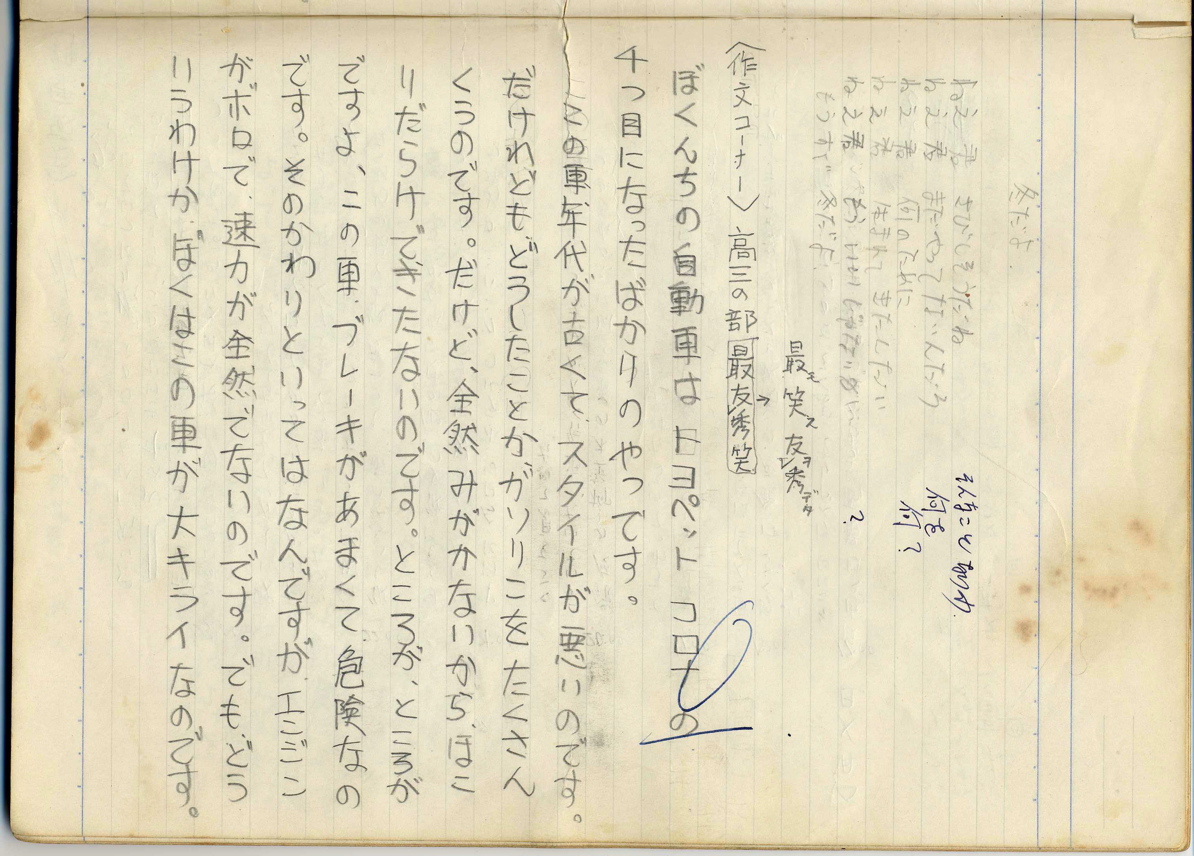 冬だよ
ねえ君 さびしそうだね
ねえ君 また
ねえ君 何のために
ねえ君 生まれて またしたい
ねえ君
もうすぐ 冬だよ
そんなこと
何を
何?
?
最モ笑ス友ヲ秀デタ
〈作文コーナー〉高三の部 最友秀笑
ぼくんちの自動車は トコペット コロナの
4つ目になったばかりのやつです。
この車年代が古くて スタイルが悪いのです。
だけれどもどうしたことかガソリンをたくさん
くうのです。だけど、全然みがかないから、ほこ
りだらけできたないのです。ところが、ところが
ですよ、この車、ブレーキがあまくて、危険なの
です。そのかわりといってはなんですが、エンジン
がボロで、速力が全然でないのです。でも、どう
いうわけか、ぼくはこの車が大キライなのです。